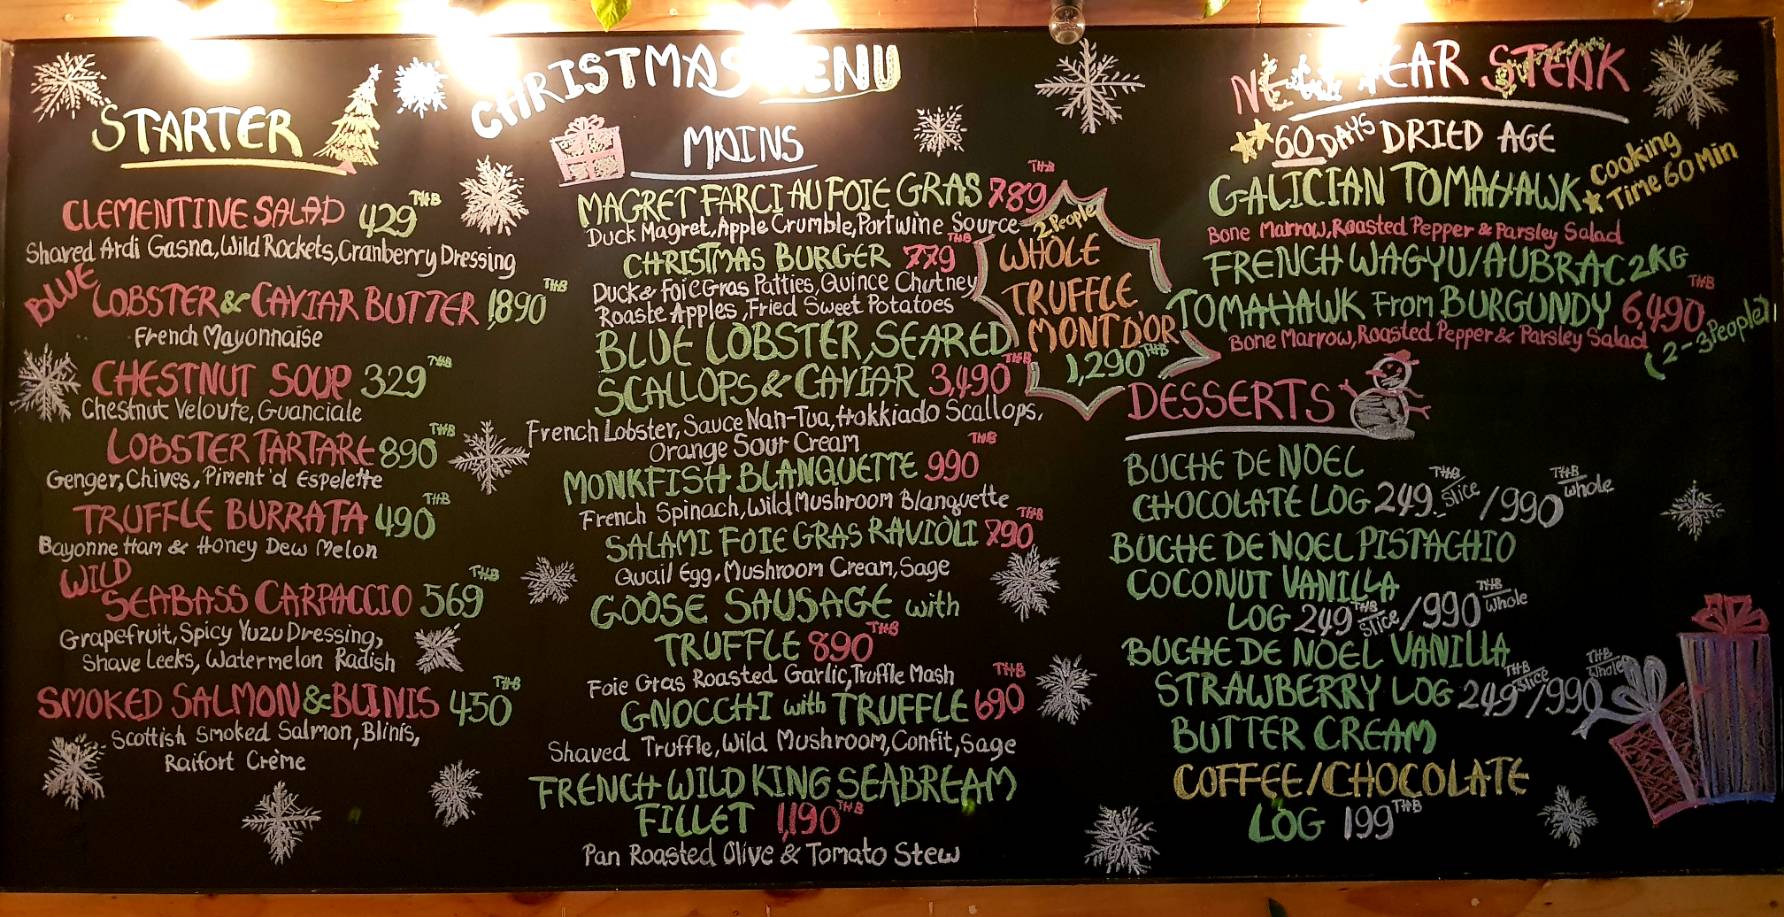 CHRISTMAS MENU
STARTER
CLEMENTINE SALAD 429 THB
Shaved Ardi Gasna, Wild Rockets, Cranberry Dressing
BLUE LOBSTER & CAVIAR BUTTER 1,890 THB
French Mayonnaise
CHESTNUT SOUP 329 THB
Chestnut Veloute, Guanciale
LOBSTER TARTARE 890 THB
Genger, Chives, Piment'd Espelette
TRUFFLE BURRATA 490 THB
Bayonne Ham & Honey Dew Melon
WILD
SEABASS CARPACCIO 569 THB
Grapefruit, Spicy Yuzu Dressing,
Shave Leeks, Watermelon Radish
SMOKED SALMON & BLINIS 450 THB
Scottish Smoked Salmon, Blinis,
Raifort Crème
MAINS
MAGRET FARCI AU FOIE GRAS 789 THB
Duck Magret, Apple Crumble, Portwine Source
CHRISTMAS BURGER 779 THB
Duck & Foie Gras Patties, Quince Chutney
Roaste Apples, Fried Sweet Potatoes
BLUE LOBSTER, SEARED
SCALLOPS & CAVIAR 3,490 THB
French Lobster, Sauce Nan-Tua, Hokkiado Scallops,
Orange Sour Cream
MONKFISH BLANQUETTE 990 THB
French Spinach, Wild Mushroom Blanquette
SALAMI FOIE GRAS RAVIOLI 790 THB
Quail Egg, Mushroom Cream, Sage
GOOSE SAUSAGE with
TRUFFLE 890 THB
Foie Gras Roasted Garlic, Truffle Mash
GNOCCHI with TRUFFLE 690 THB
Shaved Truffle, Wild Mushroom, Confit, Sage
FRENCH WILD KING SEABREAM
FILLET 1,190 THB
Pan Roasted Olive & Tomato Stew
2 People
WHOLE
TRUFFLE
MONT D'OR
1,290 THB
NEW YEAR STEAK
60 DAYS DRIED AGE
GALICIAN TOMAHAWK
Cooking
Time 60 Min
Bone Marrow, Roasted Pepper & Parsley Salad
FRENCH WAGYU/AUBRAC 2KG
TOMAHAWK From BURGUNDY 6,490 THB
Bone Marrow, Roasted Pepper & Parsley Salad
(2-3 People)
DESSERTS
BUCHE DE NOEL
CHOCOLATE LOG 249 THB slice / 990 THB whole
BUCHE DE NOEL PISTACHIO
COCONUT VANILLA
LOG 249 THB slice / 990 THB whole
BUCHE DE NOEL VANILLA
STRAWBERRY LOG 249 THB slice / 990 THB whole
BUTTER CREAM
COFFEE/CHOCOLATE
LOG 199 THB